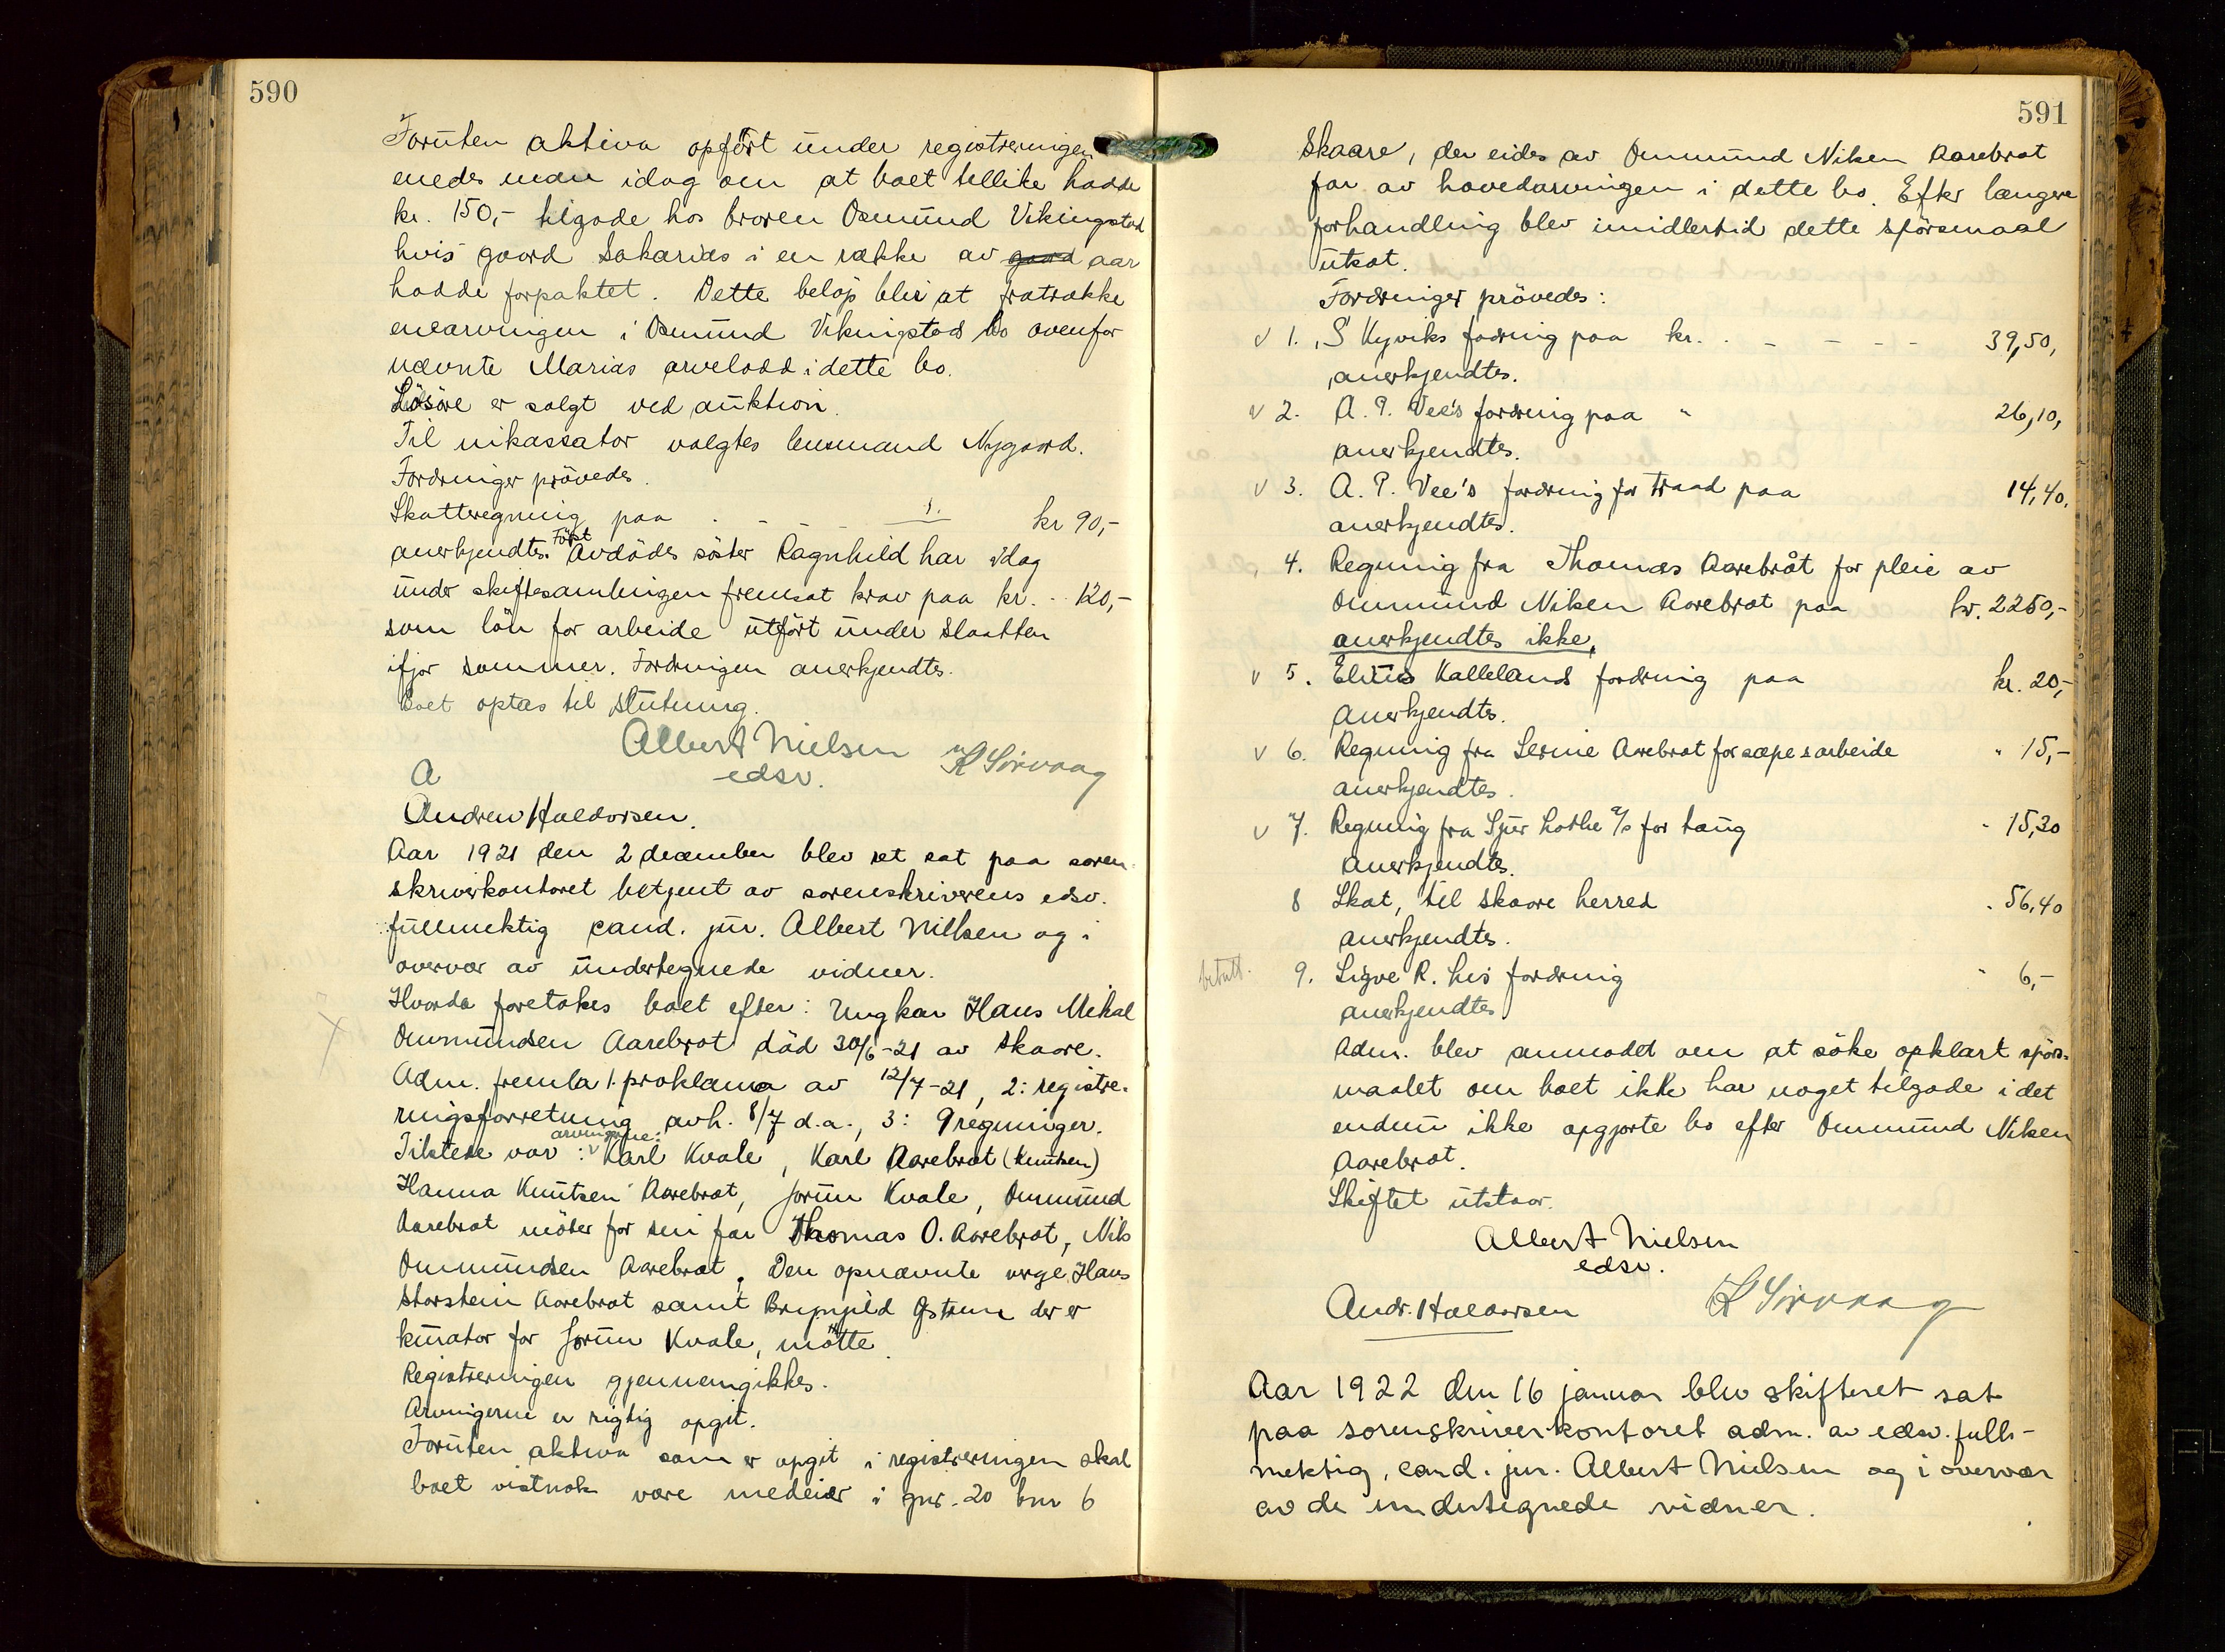 590
Foruten aktiva opfört under registreringen
enedes man idag om at boet tillike hadde
kr. 150,- tilgode hos broren Osmund Vikingstad
hvis gaard Sakarias i en række av gaard aar
hadde forpaktet. Dette belöp blir at fratrække
enearvingen i Osmund Vikingstads bo ovenfor
nævnte Marias arvelodd i dette bo.
Lösöre er solgt ved auktion.
Til inkassator valgtes lensmand Nygaard.
Fordringer prövedes.
Skatteregning paa . - - - 1. kr 90,-
anerkjendtes. Först Avdödes söster Ragnhild har idag
under skiftesamlingen fremsat krav paa kr. .. 120,-
som lön for arbeide utfört under slaatten
ifjor sommer. Fordringen anerkjendtes.
Boet optas til slutning.
Albert Nielsen
edsv.
K Sörvaag
A
Andrew Haldorsen.
Aar 1921 den 2 december blev ret sat paa soren-
skriverkontoret betjent av sorenskriverens edsv.
fuldmektig cand. jur. Albert Nielsen og i
overvær av undertegnede vidner.
Hvorda foretokes boet efter: Ungkar Hans Mikal
Ommundsen Aarebrot död 30/6-21 av Skaare.
Adm. fremla 1. proklama av 12/7-21, 2: registre-
ringsforretning avh. 8/7 d.a., 3: 9 regninger.
Tilstede var: arvingerne: Karl Kvale, Karl Aarebrot (Knutsen)
Hanna Knutsen Aarebrot, Jorun Kvale, Ommund
Aarebrot möter for sin far Thomas O. Aarebrot, Nils
Ommundsen Aarebrot. Den opnævnte verge, Hans
Storstein Aarebrot samt Brynjild Östrem der er
kurator for Jorun Kvale, mötte.
Registreringen gjennemgikkes.
Arvingerne er rigtig opgit.
Foruten aktiva som er opgit i registreringen skal
boet vistnok være medeier i gnr. 20 bnr 6
591
Skaare, der eides av Ommund Nilsen Aarebrot
far av hovedarvingen i dette bo. Efter længere
forhandling blev imidlertid dette spörsmaal
utsat.
Fordringer prövedes:
v 1. S Kyviks fordring paa kr. . - - - - 39,50,
anerkjendtes.
v 2. A. P. Vee's fordring paa " 26,10,
anerkjendtes.
v 3. A. P. Vee's fordring for traad paa 14,40.
anerkjendtes.
4. Regning fra Thomas Aarebrot for pleie av
Ommund Nilsen Aarebrot paa kr. 2250,-
anerkjendtes ikke.
v 5. Elias Kallelands fordring paa kr. 20,-
Anerkjendtes.
v 6. Regning fra Serine Aarebrot for arbeide " 15,-
anerkjendtes.
v 7. Regning fra Sjur Lothe a/s for taug " 15,30
anerkjendtes.
8 Skat, til Skaare herred " 56,40
anerkjendtes.
betalt. 9. Sigve R. Lies fordring " 6,-
anerkjendtes
Adm. blev anmodet om at söke opklart spörs-
maalet om boet ikke har noget tilgode i det
endnu ikke opgjorte bo efter Ommund Nilsen
Aarebrot.
Skiftet utstaar.
Albert Nielsen
edsv.
Andr. Haldorsen
K Sörvaag
Aar 1922 den 16 januar blev skifteret sat
paa sorenskriverkontoret adm. av edsv. fuld-
mektig, cand. jur. Albert Nielsen og i overvær
av de undertegnede vidner.